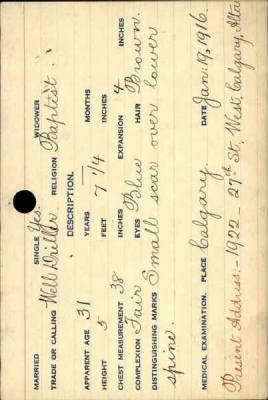 MARRIED SINGLE Yes. WIDOWER
TRADE OR CALLING Well Driller RELIGION Baptist.
DESCRIPTION.
APPARENT AGE 31 YEARS MONTHS
HEIGHT 5 FEET 7 1/4 INCHES
CHEST MEASUREMENT 38 INCHES EXPANSION 4 INCHES
COMPLEXION Fair EYES Blue HAIR Brown.
DISTINGUISHING MARKS Small scar over lower
spine.
MEDICAL EXAMINATION. PLACE Calgary. DATE Jan: 19, 1916.
Present Address:- 1922 - 27th St. West, Calgary, Alta